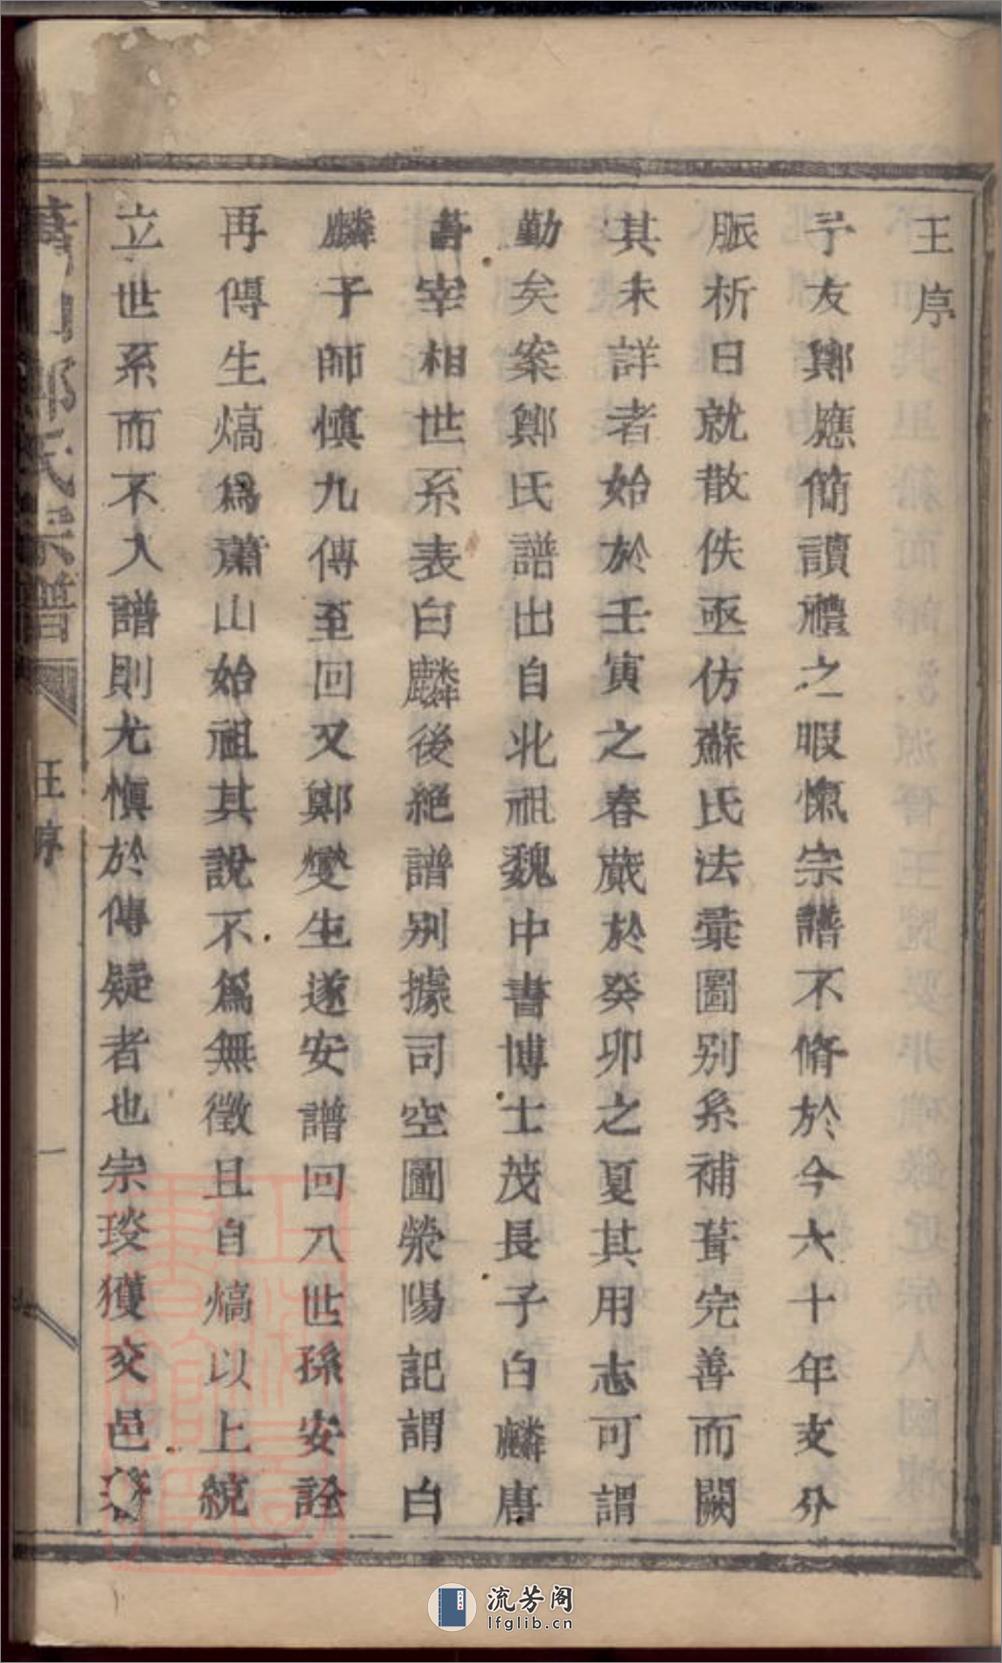 王序
予友鄭應簡讀禮之暇慨宗譜不脩於今六十年支分
脈析日就散佚亟仿蘇氏法彙圖别系補葺完善而闕
其未詳者始於壬寅之春蕆於癸卯之夏其用志可謂
勤矣案鄭氏譜出自北祖魏中書博士茂長子白麟唐
書宰相世系表白麟後絕譜别據司空圖滎陽記謂白
麟子師慎九傳至回又鄭燮生遂安譜回八世孫安詮
再傳生熇爲蕭山始祖其説不爲無徵且自熇以上統
立世系而不入譜則尤慎於傳疑者也宗琰獲交邑
蕭山鄭氏宗譜
王序
一
流芳阁
lfglib.cn